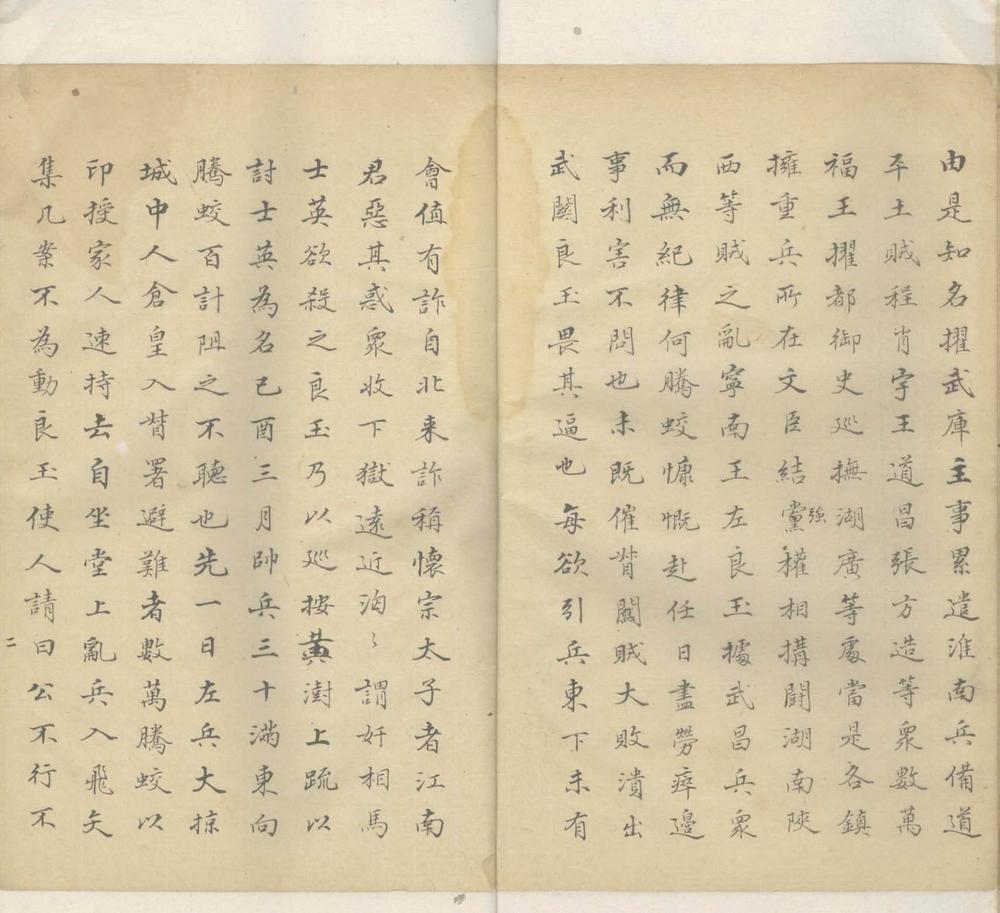 由是知名擢武庫主事累遣淮南兵備道
平土賊程肖宇王道昌張方造等衆數萬
福王擢都御史巡撫湖廣等處當是各鎮
擁重兵所在文臣結黨強權相搆鬪湖南陝
西等賊之亂寧南王左良玉據武昌兵衆
而無紀律何騰蛟慷慨赴任日盡勞瘁邊
事利害不問也未既催督闖賊大敗潰出
武關良玉畏其逼也每欲引兵東下未有
會值有詐自北来詐稱懷宗太子者江南
君惡其惑衆收下獄遠近洶〻謂奸相馬
士英欲殺之良玉乃以巡按黃澍上疏以
討士英為名己酉三月帥兵三十滿東向
騰蛟百計阻之不聽也先一日左兵大掠
城中人倉皇入督署避難者數萬騰蛟以
印授家人速持去自坐堂上亂兵入飛矢
集几案不為動良玉使人請曰公不行不
二